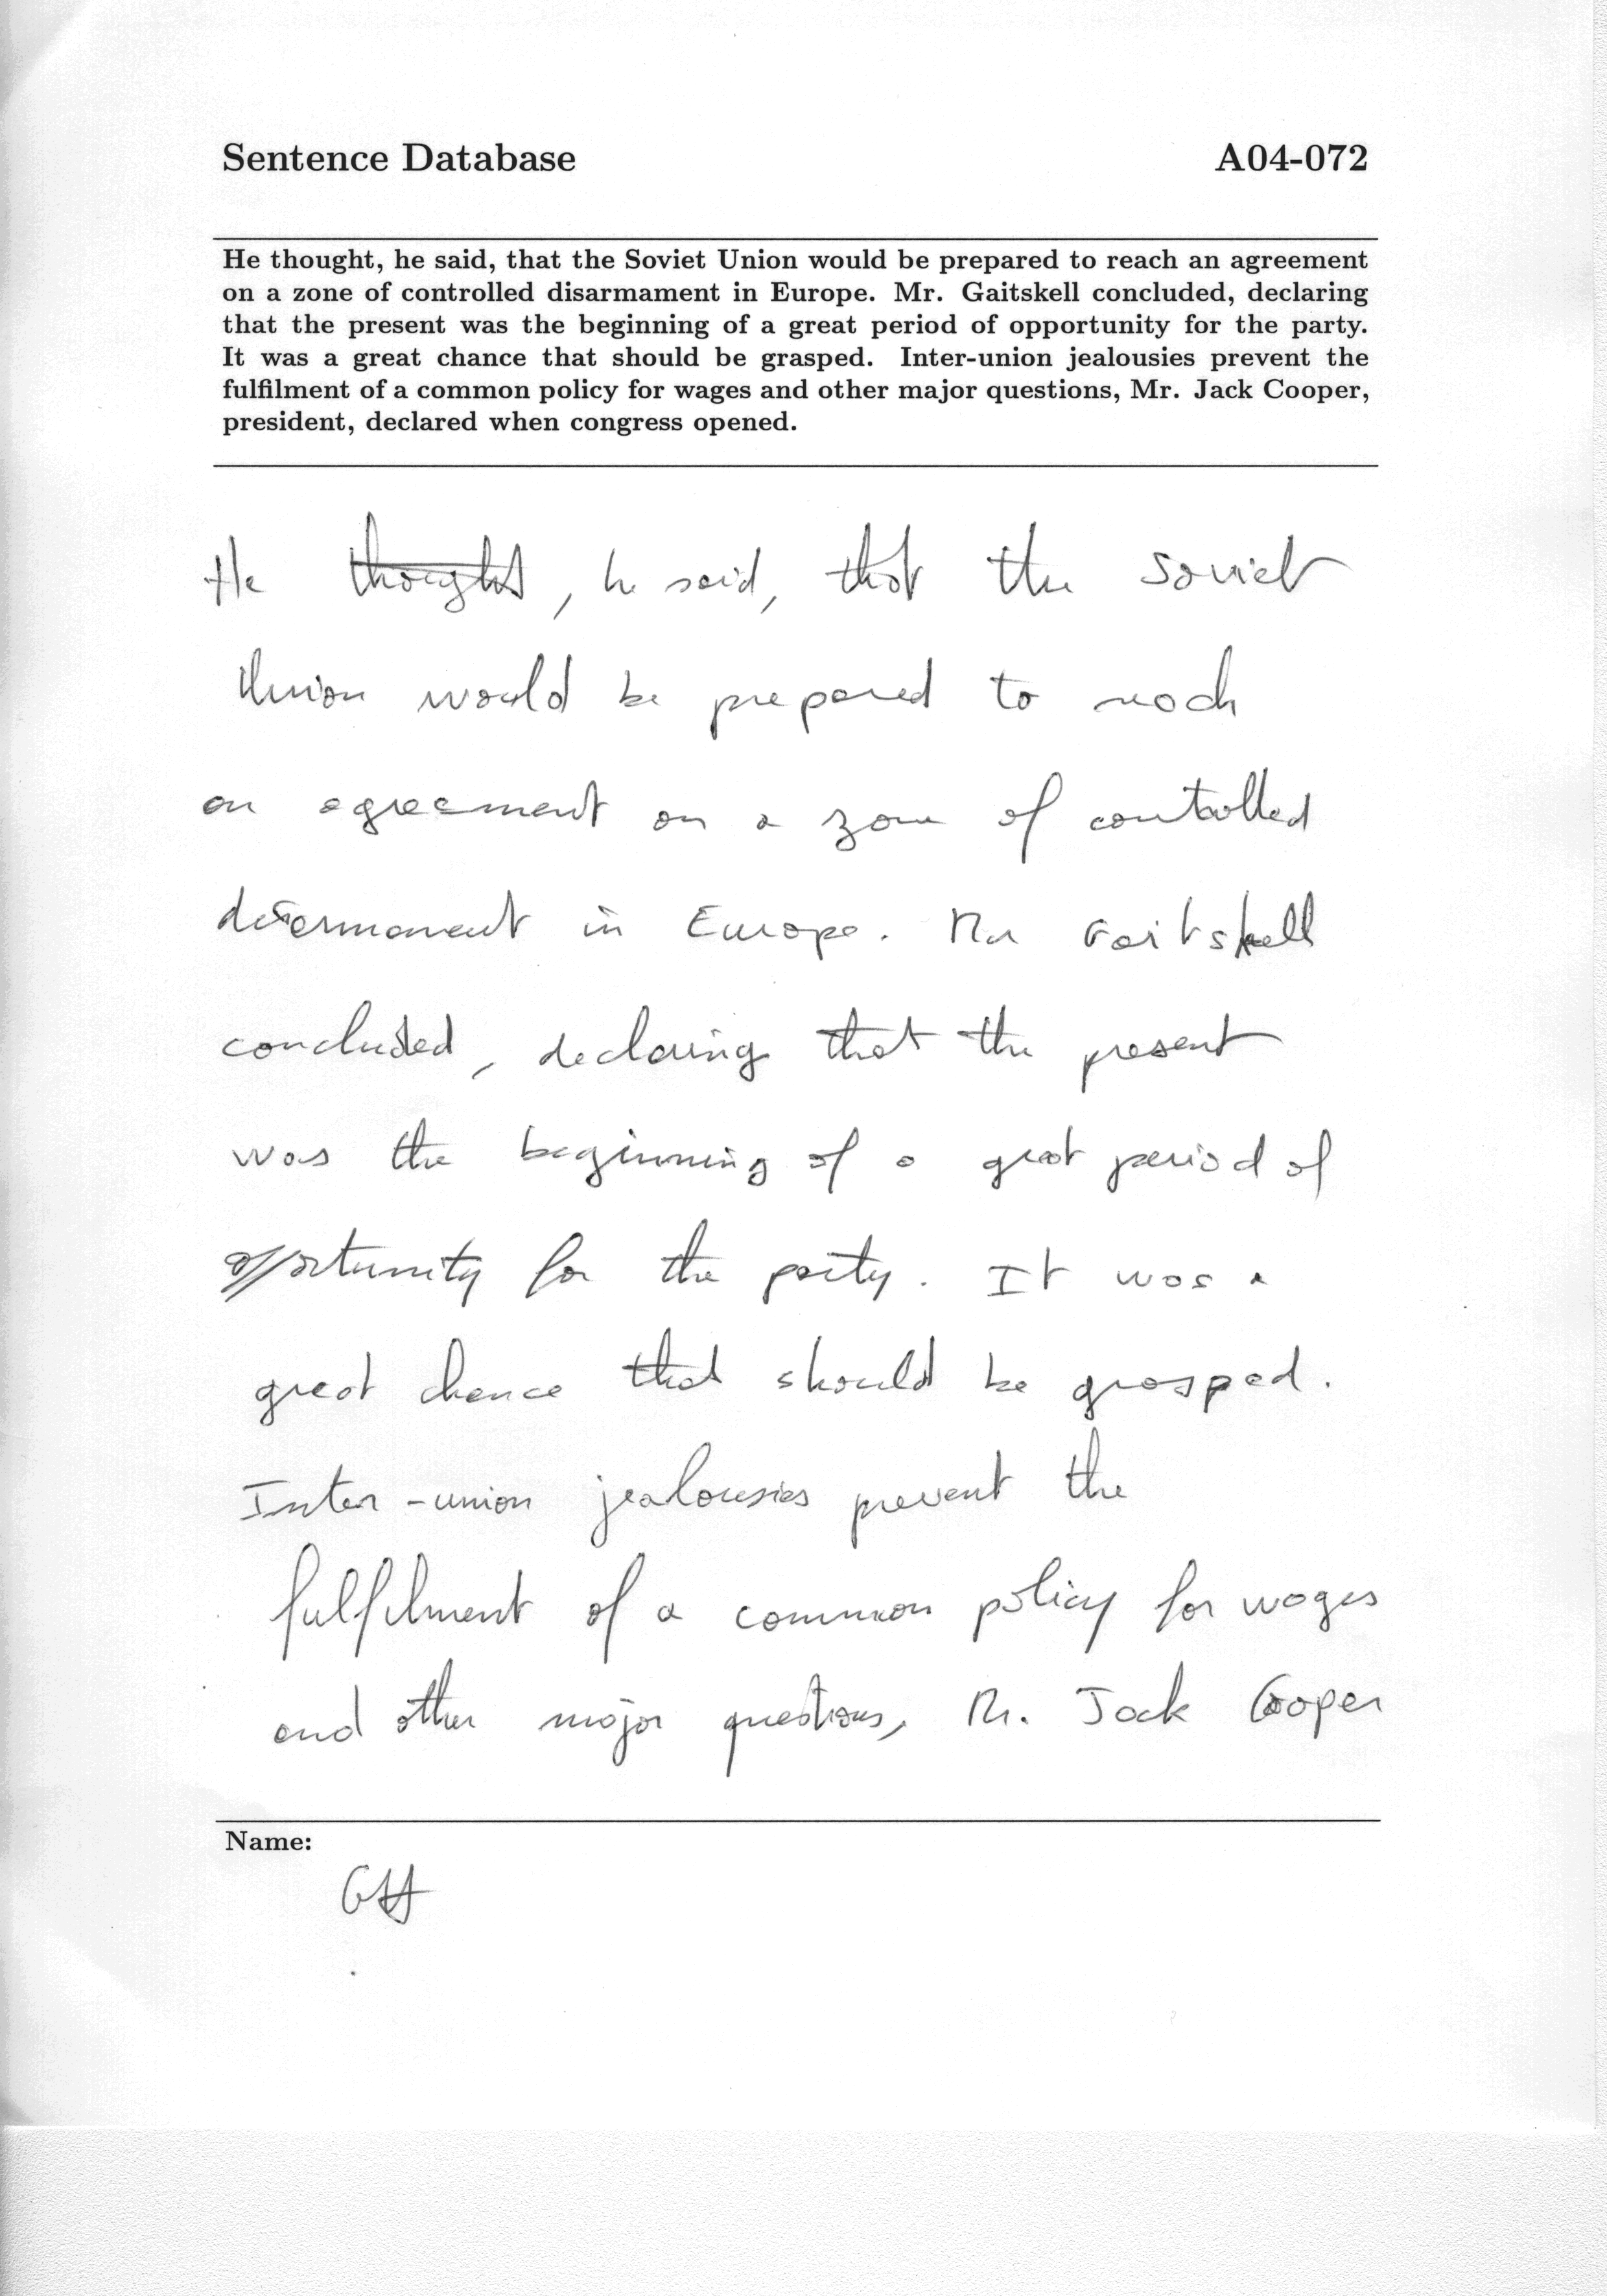 Sentence Database A04-072
He thought, he said, that the Soviet Union would be prepared to reach an agreement
on a zone of controlled disarmament in Europe. Mr. Gaitskell concluded, declaring
that the present was the beginning of a great period of opportunity for the party.
It was a great chance that should be grasped. Inter-union jealousies prevent the
fulfilment of a common policy for wages and other major questions, Mr. Jack Cooper,
president, declared when congress opened.
He thought, he said, that the Soviet
Union would be prepared to reach
an agreement on a zone of controlled
disarmament in Europe. Mr Gaitskell
concluded, declaring that the present
was the beginning of a great period of
opportunity for the party. It was a
great chance that should be grasped.
Inter-union jealousies prevent the
fulfilment of a common policy for wages
and other major questions, Mr. Jack Cooper
Name: